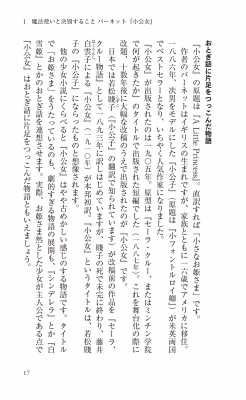 1 魔法使いと決別すること バーネット『小公女』
おとぎ話に片足をつっこんだ物語
『小公女』の原題は『A Little Princess』。直訳すれば「小さなお姫さま」です。
作者のバーネットはイギリスの生まれですが、家族とともに一六歳でアメリカに移住。
一八八六年、次男をモデルにした『小公子』（原題は『小フォントルロイ卿』）が米英両国
でベストセラーとなり、いちやく人気作家になりました。
『小公女』が出版されたのは一九〇五年。原型は『セーラ・クルー、またはミンチン学院
で何が起きたか』のタイトルで出版された短編でした（一八八七年）。これを舞台化の際に
改稿、十数年後に大幅な改稿のうえで出版されたのが『小公女』です。
日本では若松賤子（『小公子』の翻訳で知られます）が改稿前の作品を『セーラ、ク
ルー物語』として訳していますが（一八九三年）、賤子の死によって未完に終わり、藤井
白雲子による『小公女』（一九一〇年）が本邦初訳。『小公女』というタイトルは、若松賤
子の『小公子』にならったものと想像されます。
他の少女小説にくらべると、『小公女』はやや古めかしい感じのする物語です。タイトル
が「お姫さま」をうたっているのも、劇的すぎる物語の展開も、「シンデレラ」とか「白
雪姫」とかのおとぎ話を連想させます。実際、お姫さま然とした少女が主人公である点で
『小公女』はおとぎ話に片足をつっこんだ物語ともいえましょう。
17